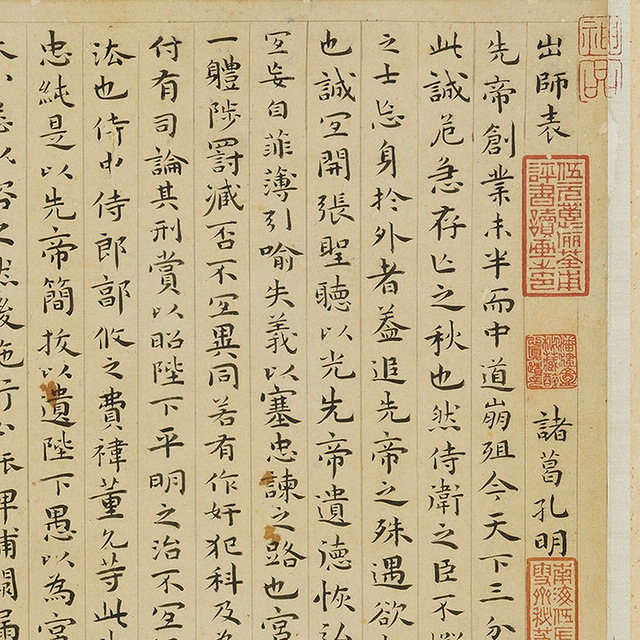 出師表 諸葛孔明
伍元蕙儷荃甫
評書讀畫之印
先帝創業未半而中道崩殂今天下三分
此誠危急存亡之秋也然侍衛之臣不
之士忘身於外者蓋追先帝之殊遇欲
也誠宜開張聖聽以光先帝遺德恢弘
宜妄自菲薄引喻失義以塞忠諫之路也宮
一體陟罰臧否不宜異同若有作奸犯科及為
付有司論其刑賞以昭陛下平明之治不宜
法也侍中侍郎郭攸之費禕董允等此
忠純是以先帝簡拔以遺陛下愚以為宮
之然後施行必裨補闕漏